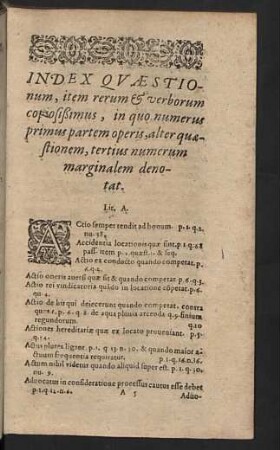 INDEX QVÆSTIO-
num, item rerum & verborum
copiosißimus, in quo numerus
primus partem operis, alter quæ-
stionem, tertius numerum
marginalem deno-
tat.
Lit. A.
ACtio semper tendit ad bonum. p.1.q.2.
nu.
Accidentia locationis quæ sint. p.1.q.28
pass. item p.2. quæst.11. & seq.
Actio ex conducto quando competat. p.
6.q.4.
Actio oneris auersi quæ sit & quando competat p.6.q.5.
Actio rei vindicatoria quibus in locatione competat p.6.
q.
Actio de his qui deiecerunt quando competat. contra
quos p.6. de aqua pluuia arcenda q.9. finium
regundorum. q.10
Actiones hereditariæ quæ ex locato proueniant. p.5.
q.
Actus plures ligant p.1. q 13. n. 30. & quando maior a-
ctuum frequentia requiratur. p.1.q.16.n.16.
Actum nihil videtur quando aliquid super est. p.1.q.30.
nu. 9.
Aduocatus in consideratione processus cautus esse debet
p.1.q.14.n.6. A 5 Aduo-